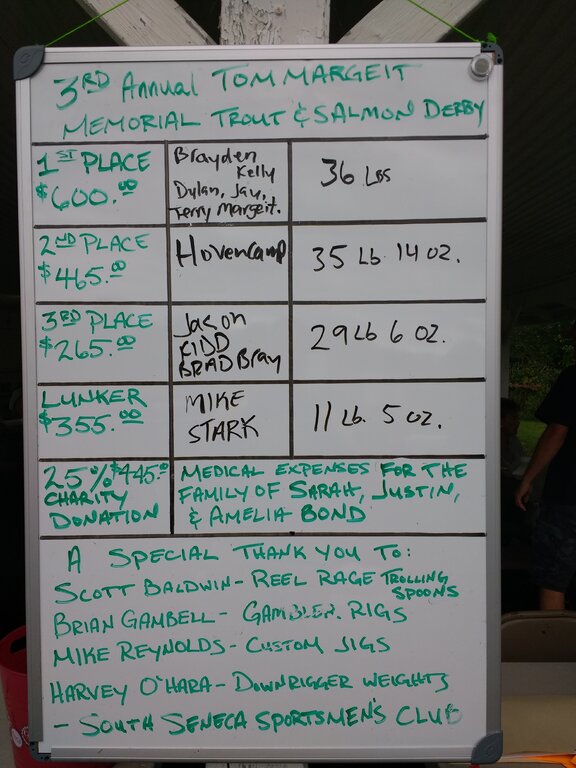 3RD Annual TOM MARGEIT
MEMORIAL TROUT & SALMON DERBY
1ST PLACE
$600.00
Brayden
Kelly
Dylan, Jay,
Terry Margeit.
36 Lbs
2ND PLACE
$465.00
Hovencamp
35 Lb 14 oz.
3RD PLACE
$265.00
Jason
KIDD
BRAD Bray
29 Lb 6 oz.
LUNKER
$355.00
MIKE
STARK
11 Lb. 5 oz.
25% $445.00
CHARITY
DONATION
MEDICAL EXPENSES FOR THE
FAMILY OF SARAH, JUSTIN,
& AMELIA BOND
A SPECIAL THANK YOU TO:
SCOTT BALDWIN - REEL RAGE TROLLING
SPOONS
BRIAN GAMBELL - GAMBLER RIGS
MIKE REYNOLDS - CUSTOM JIGS
HARVEY O'HARA - DOWNRIGGER WEIGHTS
- SOUTH SENECA SPORTSMEN'S CLUB